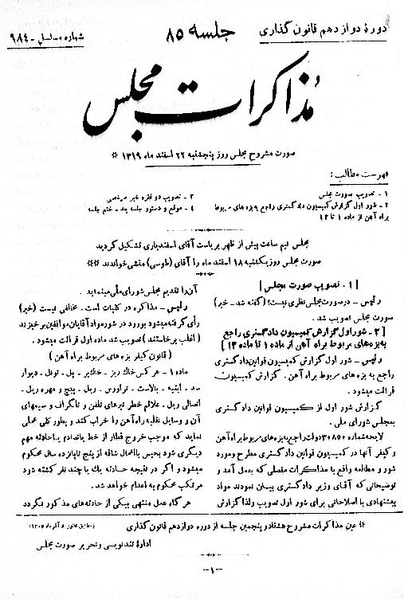 دورهٔ دوازدهم قانون گذاری
جلسه ۸۵
شماره مسلسل - ۹۸٤
مذاکرات مجلس
صورت مشروح مجلس روز پنجشنبه ۲۲ اسفند ماه ۱۳۱۹ *
فهرست مطالب:
۱ - تصویب صورت مجلس
۲ - شور اول گزارش کمیسیون دادگستری راجع ببزه های مربوط
براه آهن از ماده ۱ تا ۱۲
۳ - تصویب دو فقره خبر مرخصی
٤ - موقع و دستور جلسه بعد - ختم جلسه
مجلس نیم ساعت پیش از ظهر بریاست آقای اسفندیاری تشکیل گردید
صورت مجلس روز یکشنبه ۱۸ اسفند ماه را آقای (طوسی) منشی خواندند ***
[ ۱ - تصویب صورت مجلس ]
رئیس - در صورت مجلس نظری نیست؟ (گفته شد - خیر)
صورت مجلس تصویب شد.
[ ۲ - شور اول گزارش کمیسیون دادگستری راجع
به بزه‌های مربوط براه آهن از ماده ۱ تا ماده ۱۲ ]
رئیس - شور اول گزارش کمیسیون قوانین دادگستری
راجع به بزه های مربوط براه آهن. گزارش کمیسیون
قرائت میشود.
گزارش شور اول از کمیسیون قوانین دادگستری
بمجلس شورای ملی.
لایحه شماره ۳۰۸۵۰ دولت راجع ببزه‌های مربوط براه آهن
و کیفر آنها در کمیسیون قوانین دادگستری مطرح و مورد
شور و مطالعه واقع با مذاکرات مفصلی که بعمل آمد و
توضیحاتی که آقای وزیر دادگستری بیان نمودند مواد
پیشنهادی با اصلاحاتی برای شور اول تصویب و لذا گزارش
آن را تقدیم مجلس شورای ملی مینماید.
رئیس - مذاکره در کلیات است. مخالفی نیست (خیر)
رأی گرفته میشود بورود در شور مواد آقایان موافقین برخیزند
(اغلب برخاستند) تصویب شد ماده اول قرائت میشود.
(قانون کیفر بزه های مربوط براه آهن)
ماده ۱ - هر کس خاک ریز - خاک بر - پل - تونل - دیوار
سد - ابنیه - بالاست - تراورس - ریل - پیچ و مهره ریل -
اتصالی ریل - علائم خطر تیرهای تلفن و تلگراف و سیمهای
آن و وسایل نقلیه راه آهن را خراب کند و بطور کلی عملی
نماید که موجب خروج قطار از خط یا تصادم یا حادثه مهم
دیگری شود بحبس با اعمال شاقه از پنج تا پانزده سال محکوم
میشود و اگر در نتیجه حادثه یک یا چند نفر کشته شود
مرتکب محکوم به اعدام خواهد شد.
هر گاه عمل منتهی بیکی از حادثه های مذکور نگردد
* عین مذاکرات مشروح هشتاد و پنجمین جلسه از دوره دوازدهم قانون گذاری
ادارهٔ تند نویسی و تحریر صورت مجلس
- ۱ -